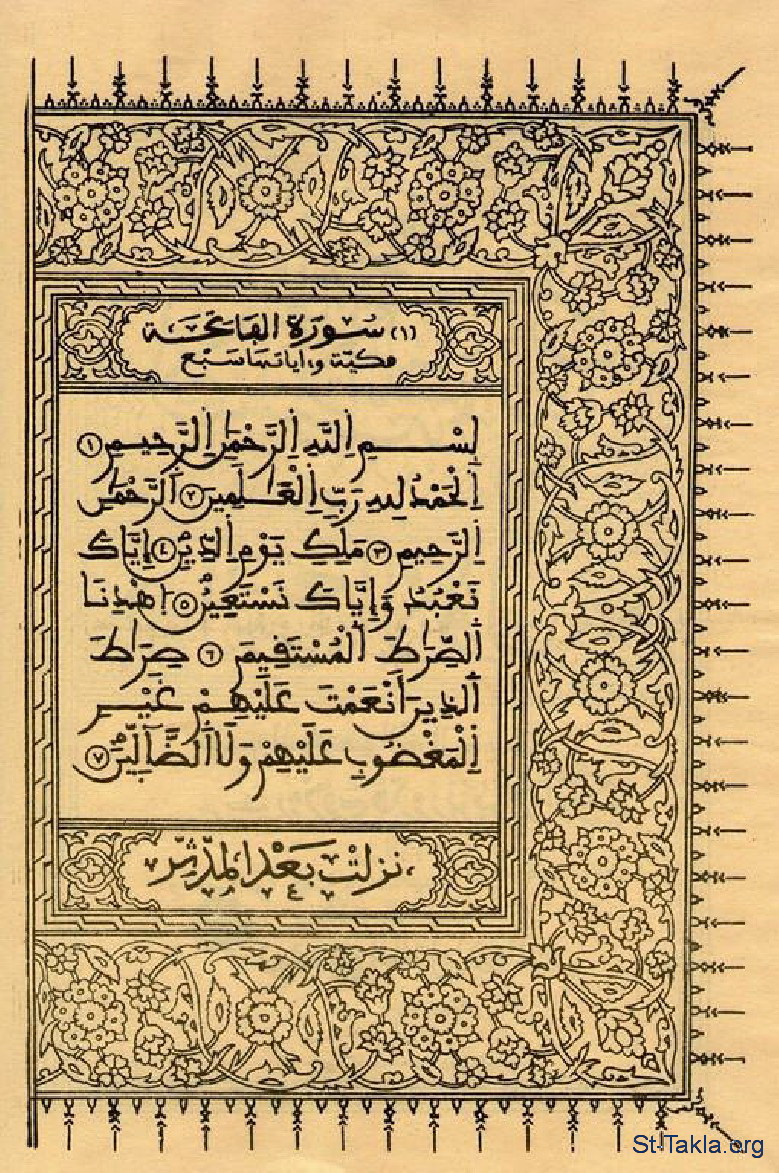 (١) سورة الفاتحة
مكية وءاياتها سبع
بِسْمِ اِللَّهِ اِلرَّحْمَٰنِ اِلرَّحِيمِ ١
اِلْحَمْدُ لِلهِ رَبِّ اِلْعَٰلَمِينَ ٢ اَلرَّحْمَٰنِ
اِلرَّحِيمِ ٣ مَلِكِ يَوْمِ اِلدِّينِ ٤ إِيَّاكَ
نَعْبُدُ وَإِيَّاكَ نَسْتَعِينُ ٥ اِهْدِنَا
اَلصِّرَٰطَ اَلْمُسْتَقِيمَ ٦ صِرَٰطَ
اَلذِينَ أَنْعَمْتَ عَلَيْهِمْ غَيْرِ
اِلْمَغْضُوبِ عَلَيْهِمْ وَلَا اَلضَّآلِّينَ ٧
نزلت بَعْد المدّثر
St-Takla.org